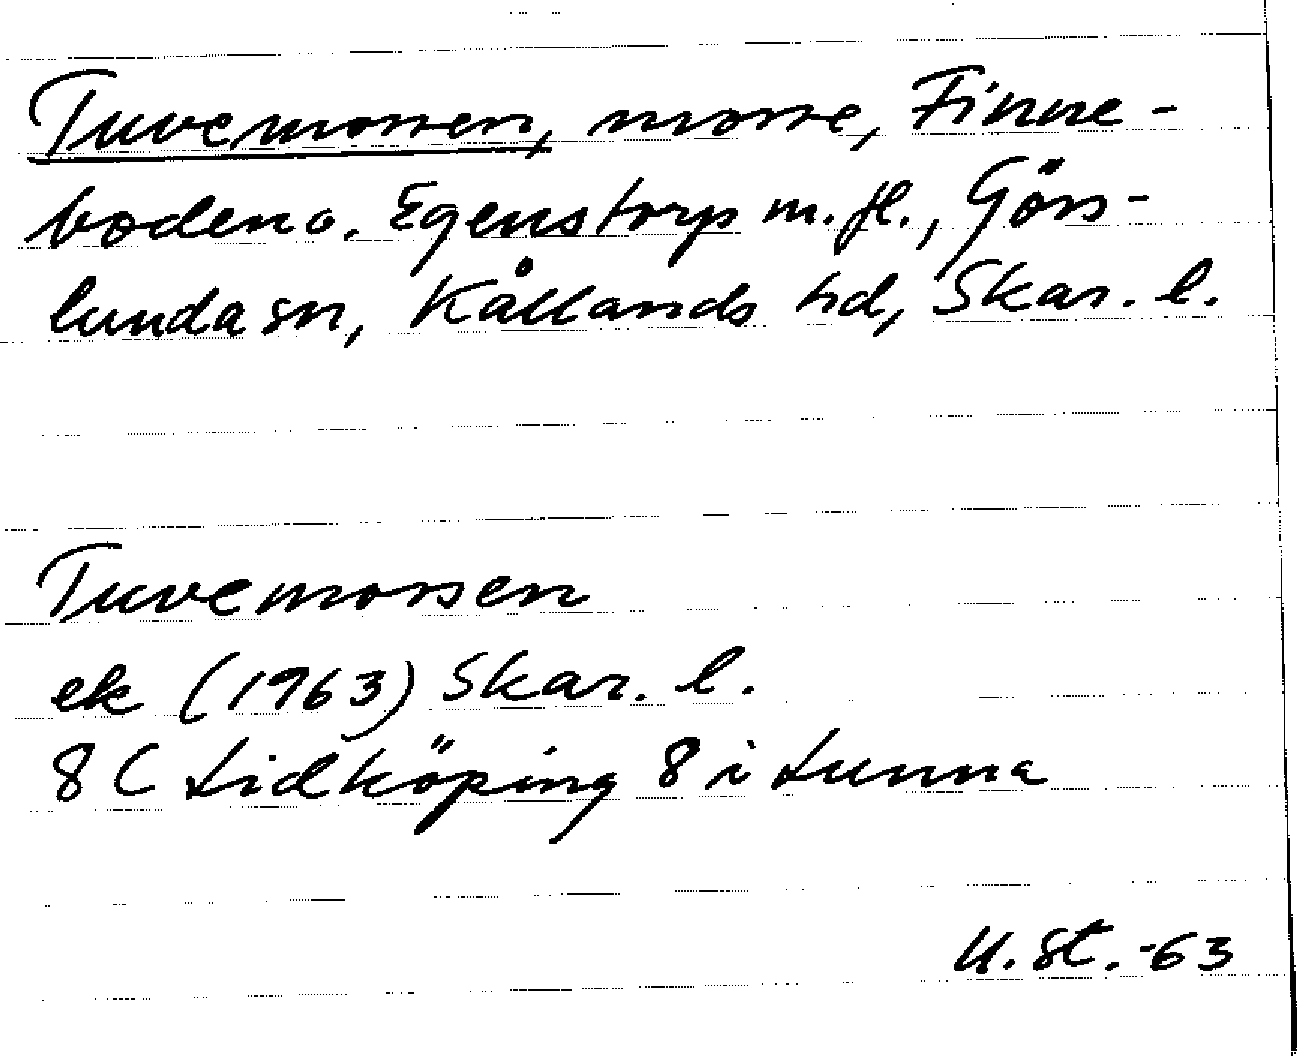 Tuvemossen, mosse, Finne-
boden o. Egenstorp m. fl., Görs-
lunda sn, Kållands hd, Skar. l.
Tuvemossen
ek (1963) Skar. l.
8 C Lidköping 8 i Lunna
U. St. -63